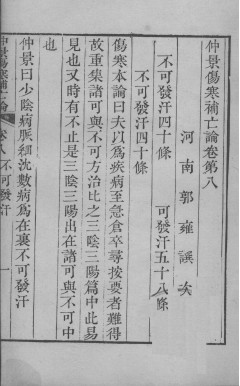 仲景傷寒補亡論卷第八
河南郭雍譔次
不可發汗四十條
可發汗五十八條
不可發汗四十條
傷寒本論曰夫以爲疾病至急倉卒尋按要者難得
故重集諸可與不可方治比之三陰三陽篇中此易
見也又時有不止是三陰三陽出在諸可與不可中
也
仲景曰少陰病脈細沈數病爲在裏不可發汗
仲景傷寒補亡論
卷八不可發汗
一